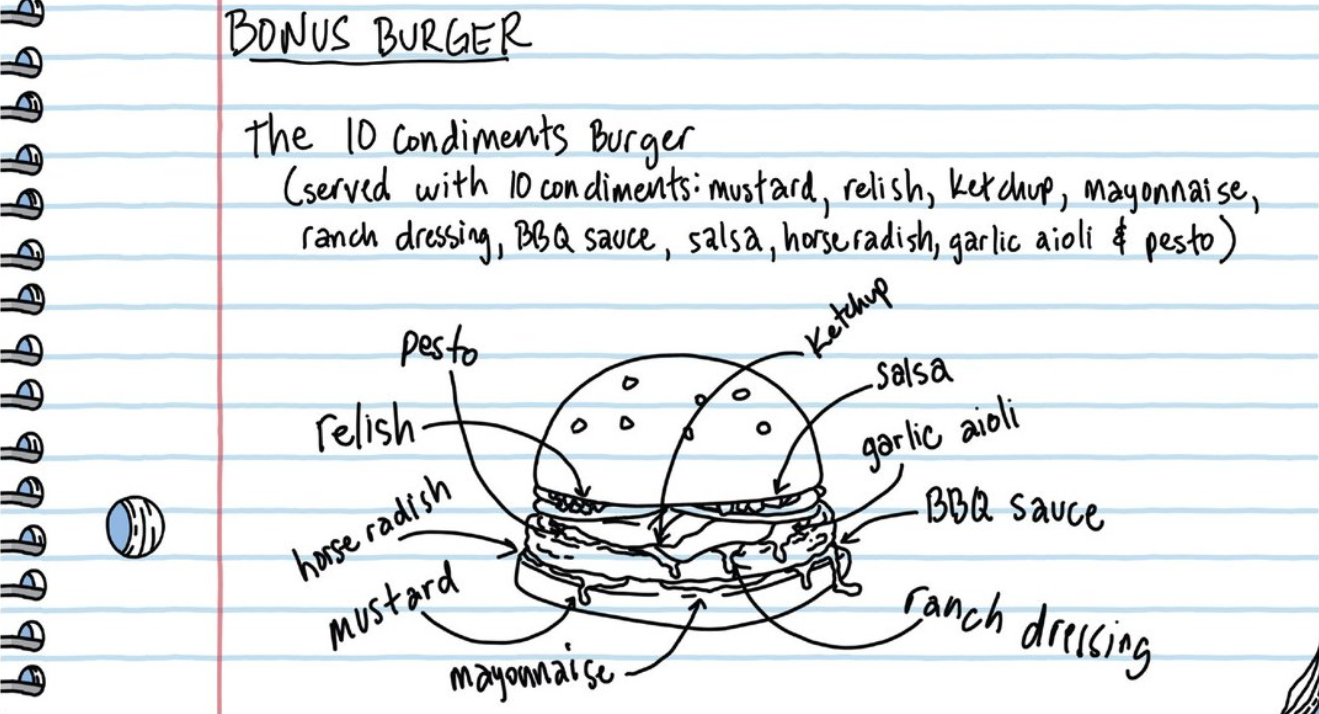 BONUS BURGER
The 10 Condiments Burger
(served with 10 condiments: mustard, relish, ketchup, mayonnaise,
ranch dressing, BBQ sauce, salsa, horseradish, garlic aioli & pesto)
ketchup
pesto
salsa
relish
garlic aioli
horseradish
BBQ sauce
mustard
ranch dressing
mayonnaise